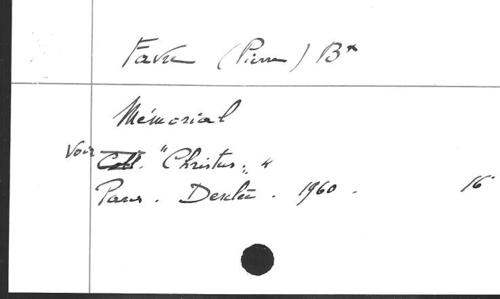 Favre (Pierre) Bx
Mémorial
Voir Coll. "Christus"
Paris. Desclée. 1960. 16°